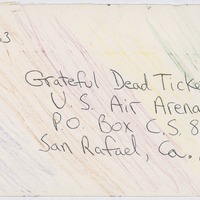 3
Grateful Dead Ticke
U.S. Air Arena
P.O. Box C.S. 8
San Rafael, Ca.,